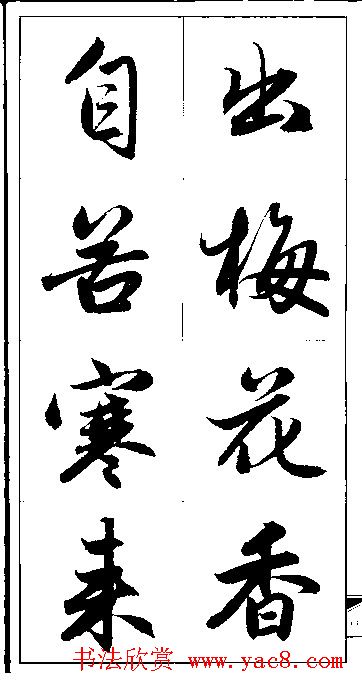 出梅花香
自苦寒来
书法欣赏 www.yac8.com